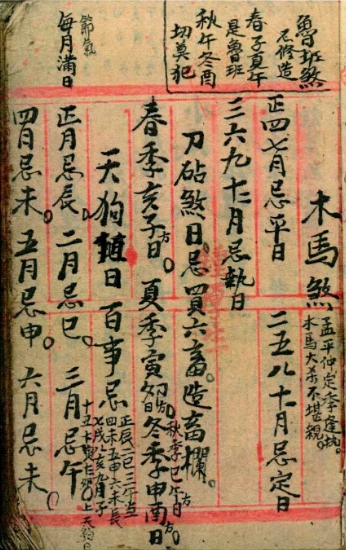 魯班煞
不修造
春子夏午
是魯班
秋午冬酉
切莫犯
節氣
每月滿日
木馬煞 孟平仲定季逢執。
木馬大杀不堪親。
正四七月忌平日 二五八十月忌定日
三六九十二月忌執日
刀砧煞日。忌買六畜。造畜欄。
春季亥子日方。夏季寅卯日方。秋季巳午日方 冬季申酉日方。
天狗日 百事忌 正辰二巳三午
四未五申六
正月忌辰。二月忌巳。三月忌午
四月忌未。五月忌申。六月忌未。